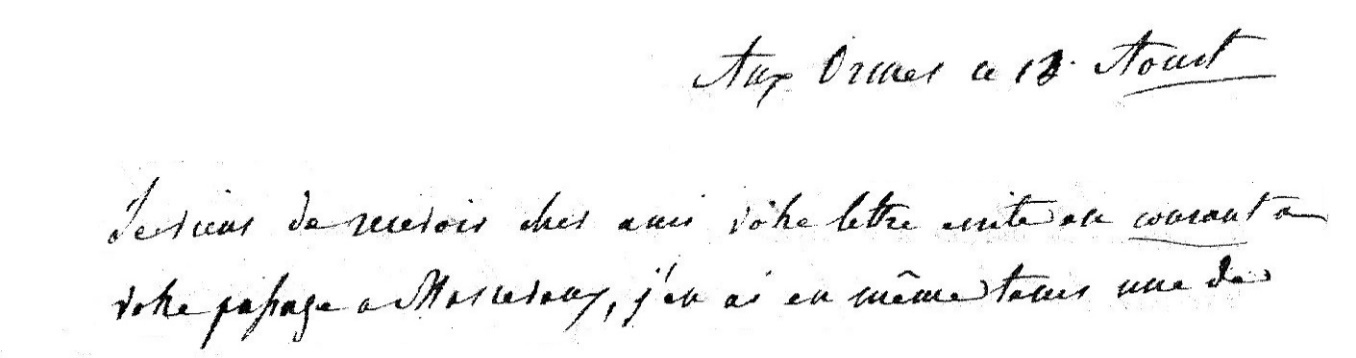 Aux Ormes ce 13. Aoust
Je viens de recevoir cher ami vôtre lettre ecrite en courant a
votre passage a j'en ai en même tems une de